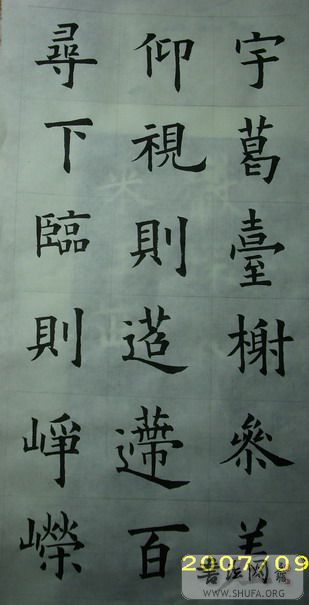 宇葛臺榭叅差
仰視則迢遰百
尋下臨則崢嶸
2007/09
書法网
WWW.SHUFA.COM